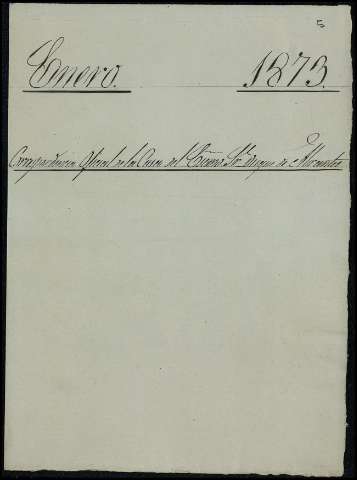 5
Enero. 1873.
Correspondencia Oficial de la Casa del Excmo Sr. Duque de